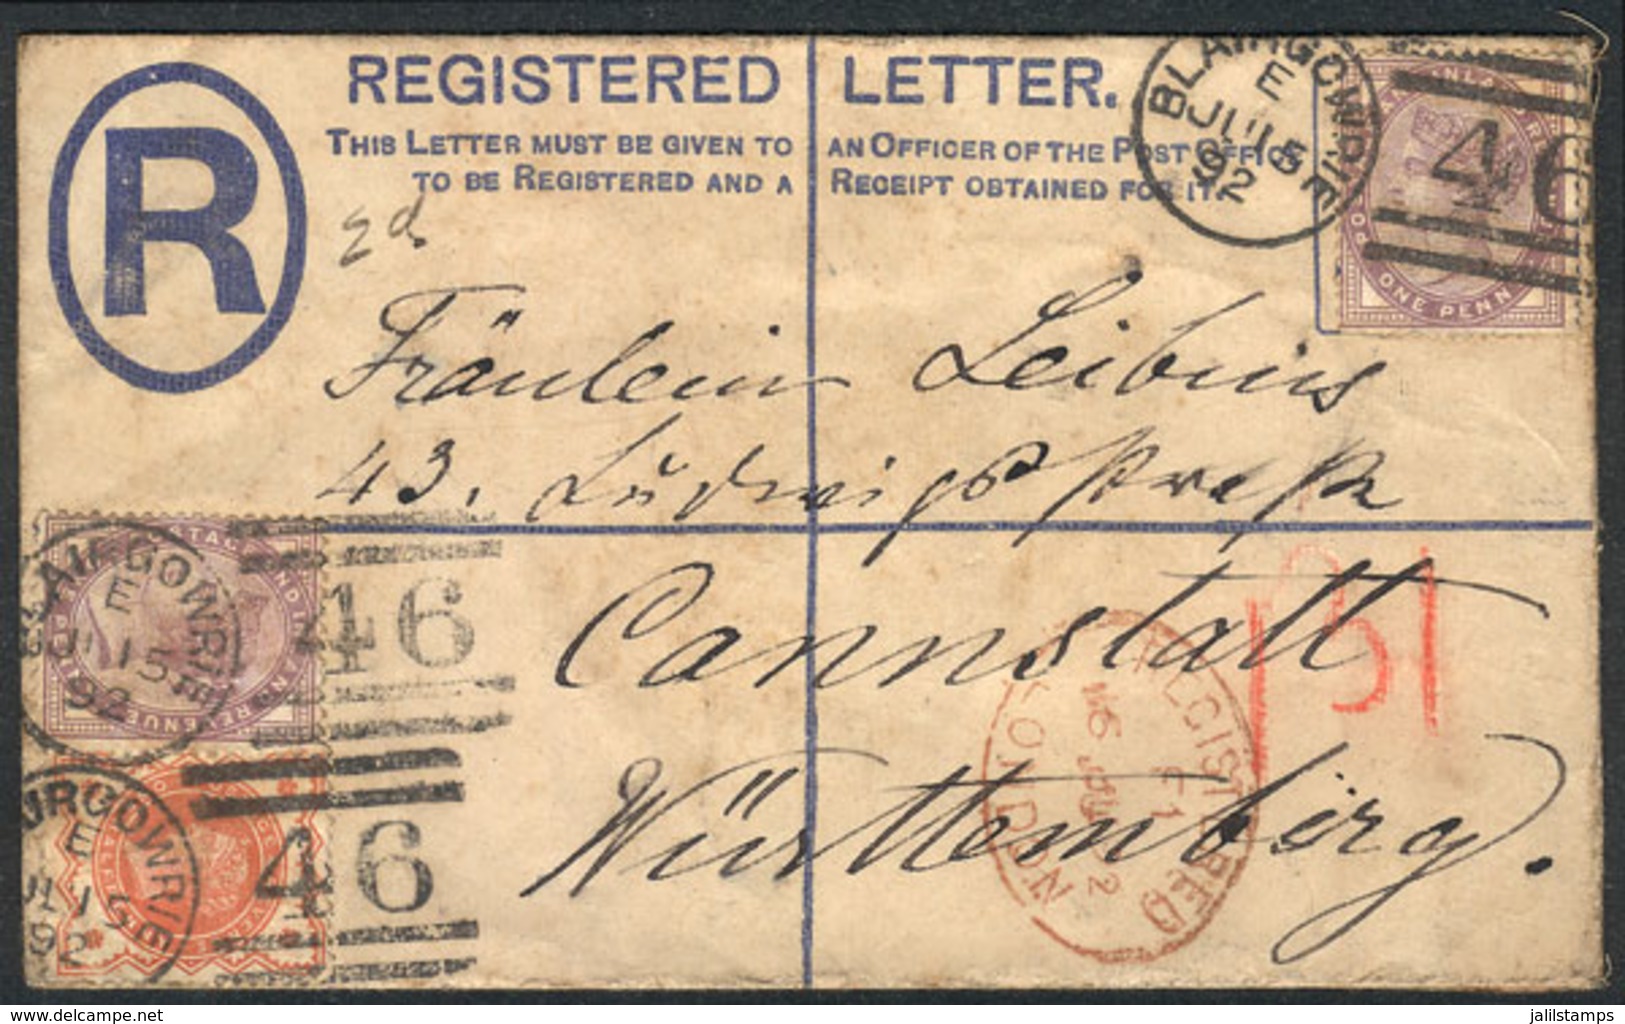 REGISTERED LETTER.
THIS LETTER MUST BE GIVEN TO AN OFFICER OF THE POST OFFICE
TO BE REGISTERED AND A RECEIPT OBTAINED FOR IT.
R
2d.
BLAIRGOWRIE
E
JU 15
92
46
ONE PENNY
Fräulein Leibius
43. Ludwigstraße
Cannstatt
Württemberg.
BLAIRGOWRIE
E
JU 15
92
46
REVENUE
BLAIRGOWRIE
E
JU 15
92
46
REGISTERED
LONDON
92
delcampe.net
jalilstamps